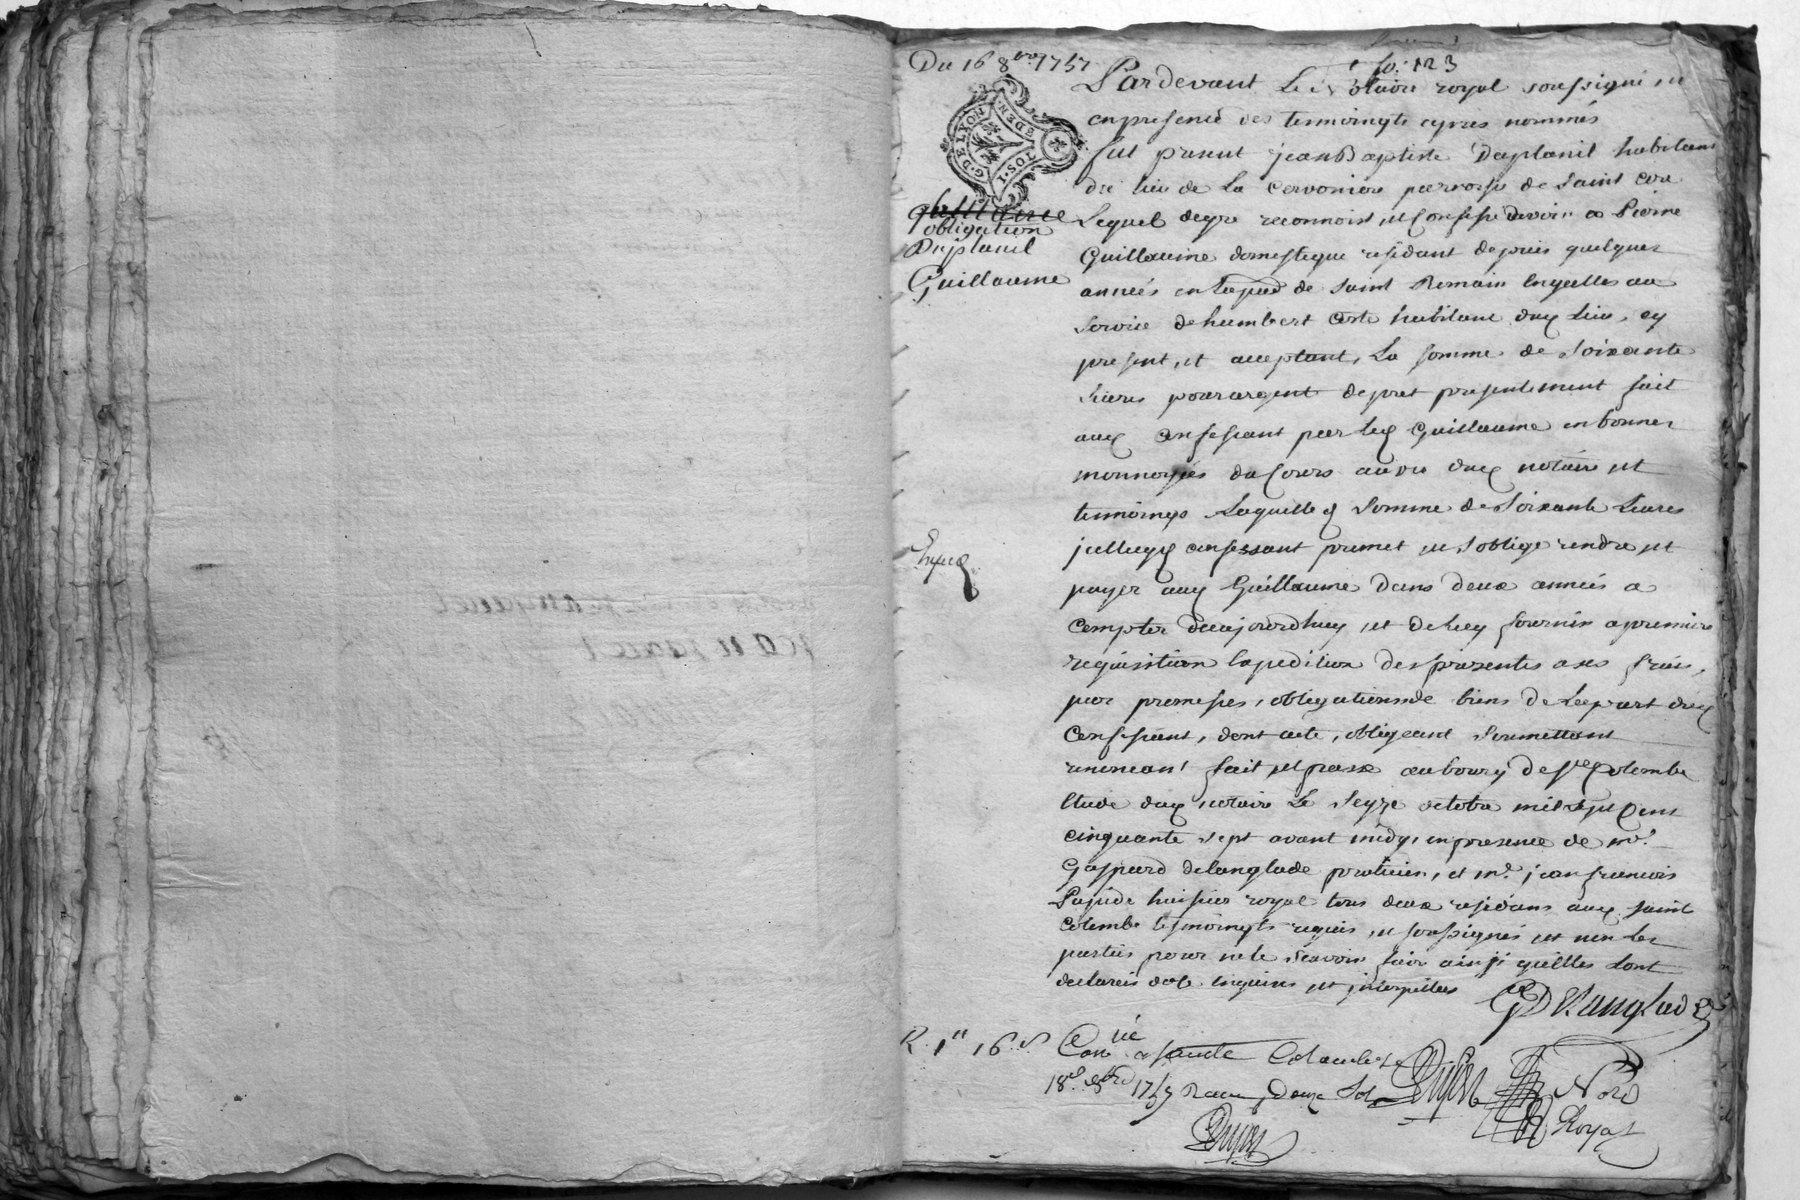 Du 16 8bre 1757
fo: 123
Pardevant Le Notaire royal soussigné et
en presence des temoingts cyores nommés
fut present jean Baptiste Daplanil habitans
du lieu de La Cervoniere parroisse de Saint
G. DE LYON
EDEN.
10S.1
Lequel degre reconnoist, et confesse devoir a Pierre
obligation
Daplanil
Guillaume
Guillaume domestique residant depuis quelques
années en laparr de Saint Romain Enjalles au
service de humbert habitant duq lieu, cy
present, et acceptant, La somme de Soixante
Livres pour argent depret presentement fait
auq confessant par leq Guillaume en bonnes
monnoyes du Cours au vu duq notaire et
temoings Laquelle q Somme de Soixante Livres
jcelluyq confessant promet et soblige rendre et
payer auq Guillaume dans deux années a
compter daujourdhuy, et de luy fournir a premiere
requisition lexpedition des presentes a ses frais,
par promesses, obligations de biens de Lapart dud
Confessant, dont acte, obligeant Soumettant
renoncant fait et passé au bourg de Ste Colombe
Etude duq notaire Le Seize octobre mil sept Cent
cinquante sept avant midy, en presence de mr.
Gaspard delanglade praticien, et mr. jean francois
Pajude huissier royal tous deux residans auq Saint
Colombe temoingts requis, et soussignés et non les
parties pour ne le scavoir faire ainsi quelles Sont
declareés de ce enquises et jnterpellées
GDelanglade
R. 1" 16.s
Conlé a Sainte Colombe le
18e 8bre 1757 Recu Douze Sols
Nore
Royal